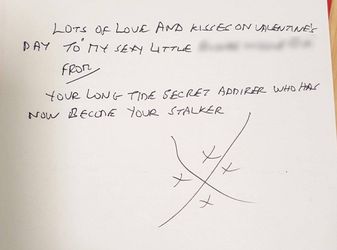 LOTS OF LOVE AND KISSES ON VALENTINE'S
DAY TO MY SEXY LITTLE
FROM
YOUR LONG TIME SECRET ADMIRER WHO HAS
NOW BECOME YOUR STALKER
X X
X X